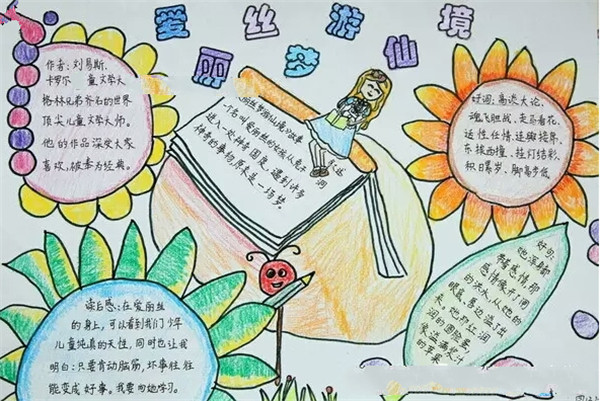 爱丽丝梦游仙境
作者：刘易斯.
卡罗尔 童文学大
格林兄弟齐名的世界
顶尖儿童文学大师。
他的作品深受大家
喜欢，被奉为经典。
《爱丽丝梦游仙境》故事
一个名叫爱丽丝的女孩从兔子
洞
进入一处神奇国度，遇到许多
神奇的事物，原来是一场梦。
好词：高谈大论、
魂飞胆战、走马看花、
近性任情、连脚接带、
东挨西撞、挂灯结彩、
积日累岁、脚高步低
读后感：在爱丽丝
的身上，可看到我们少年
儿童纯真的天性，同时也让我
明白：只要肯动脑筋，坏事往往
能变成好事。我要向她学习。
好句：
她浓郁
着感情，那
感情像开了闸
的洪水，从她的
眼底、唇边溢了出
来，她那红润
润的圆脸蛋，
像溢满浆汁
的苹果